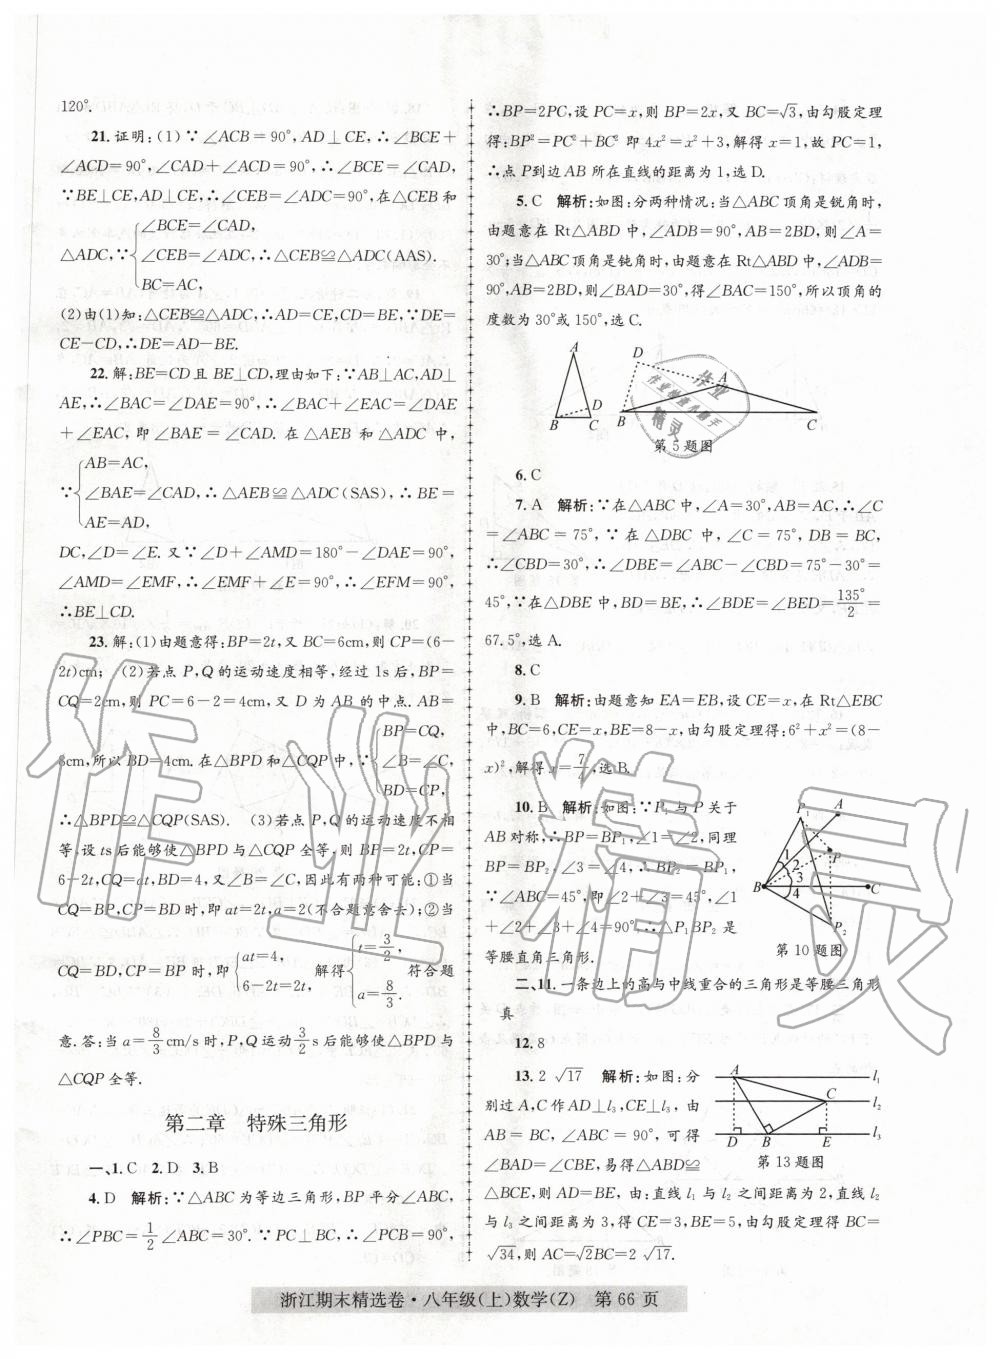 120°.
21.证明:(1)∵∠ACB=90°,AD⊥CE,∴∠BCE+
∠ACD=90°,∠CAD+∠ACD=90°,∴∠BCE=∠CAD,
∵BE⊥CE,AD⊥CE,∴∠CEB=∠ADC=90°,在△CEB和
∠BCE=∠CAD,
△ADC,∵{∠CEB=∠ADC,∴△CEB≌△ADC(AAS).
BC=AC,
(2)由(1)知:△CEB≌△ADC,∴AD=CE,CD=BE,∵DE=
CE-CD,∴DE=AD-BE.
22.解:BE=CD且BE⊥CD,理由如下:∵AB⊥AC,AD⊥
AE,∴∠BAC=∠DAE=90°,∴∠BAC+∠EAC=∠DAE
+∠EAC,即∠BAE=∠CAD.在△AEB和△ADC中,
AB=AC,
∵{∠BAE=∠CAD,∴△AEB≌△ADC(SAS).∴BE=
AE=AD,
DC,∠D=∠E.又∵∠D+∠AMD=180°-∠DAE=90°,
∠AMD=∠EMF,∴∠EMF+∠E=90°,∴∠EFM=90°.
∴BE⊥CD.
23.解:(1)由题意得:BP=2t,又BC=6cm,则CP=(6-
2t)cm; (2)若点P,Q的运动速度相等,经过1s后,BP=
CQ=2cm,则PC=6-2=4cm,又D为AB的中点.AB=
BP=CQ,
8cm,所以BD=4cm.在△BPD和△CQP中,∵{∠B=∠C,
BD=CP,
∴△BPD≌△CQP(SAS). (3)若点P,Q的运动速度不相
等,设ts后能够使△BPD与△CQP全等,则BP=2t,CP=
6-2t,CQ=at,BD=4,又∠B=∠C,因此有两种可能:①当
CQ=BP,CP=BD时,即at=2t,a=2(不合题意舍去);②当
CQ=BD,CP=BP时,即{at=4, 6-2t=2t, 解得{t=3/2, a=8/3. 符合题
意.答:当a=8/3cm/s时,P,Q运动3/2s后能够使△BPD与
△CQP全等.
第二章 特殊三角形
一、1.C 2.D 3.B
4.D 解析:∵△ABC为等边三角形,BP平分∠ABC,
∴∠PBC=1/2∠ABC=30°.∵PC⊥BC,∴∠PCB=90°,
∴BP=2PC,设PC=x,则BP=2x,又BC=√3,由勾股定理
得:BP²=PC²+BC²即4x²=x²+3,解得x=1,故PC=1,
∴点P到边AB所在直线的距离为1,选D.
5.C 解析:如图:分两种情况:当△ABC顶角是锐角时,
由题意在Rt△ABD中,∠ADB=90°,AB=2BD,则∠A=
30°;当△ABC顶角是钝角时,由题意在Rt△ABD中,∠ADB=
90°,AB=2BD,则∠BAD=30°,得∠BAC=150°,所以顶角的
度数为30°或150°,选C.
A
B
C
D
D
A
B
C
第5题图
6.C
7.A 解析:∵在△ABC中,∠A=30°,AB=AC,∴∠C
=∠ABC=75°,∵在△DBC中,∠C=75°,DB=BC,
∴∠CBD=30°,∴∠DBE=∠ABC-∠CBD=75°-30°=
45°,∵在△DBE中,BD=BE,∴∠BDE=∠BED=135°/2=
67.5°,选A.
8.C
9.B 解析:由题意知EA=EB,设CE=x,在Rt△EBC
中,BC=6,CE=x,BE=8-x,由勾股定理得:6²+x²=(8-
x)²,解得x=7/4,选B.
10.B 解析:如图:∵P₁与P关于
AB对称,∴BP=BP₁,∠1=∠2,同理
BP=BP₂,∠3=∠4,∴BP₂=BP₁,
∵∠ABC=45°,即∠2+∠3=45°,∠1
+∠2+∠3+∠4=90°,∴△P₁BP₂是
等腰直角三角形.
P₁
A
P
B
C
P₂
1
2
3
4
第10题图
二、11.一条边上的高与中线重合的三角形是等腰三角形
真
12.8
13.2√17 解析:如图:分
别过A,C作AD⊥l₃,CE⊥l₃,由
AB=BC,∠ABC=90°,可得
∠BAD=∠CBE,易得△ABD≌
A
C
D
B
E
l₁
l₂
l₃
第13题图
△BCE,则AD=BE,由:直线l₁与l₂之间距离为2,直线l₂
与l₃之间距离为3,得CE=3,BE=5,由勾股定理得BC=
√34,则AC=√2BC=2√17.
浙江期末精选卷·八年级(上)数学(Z) 第66页
作业精灵
作业
精灵